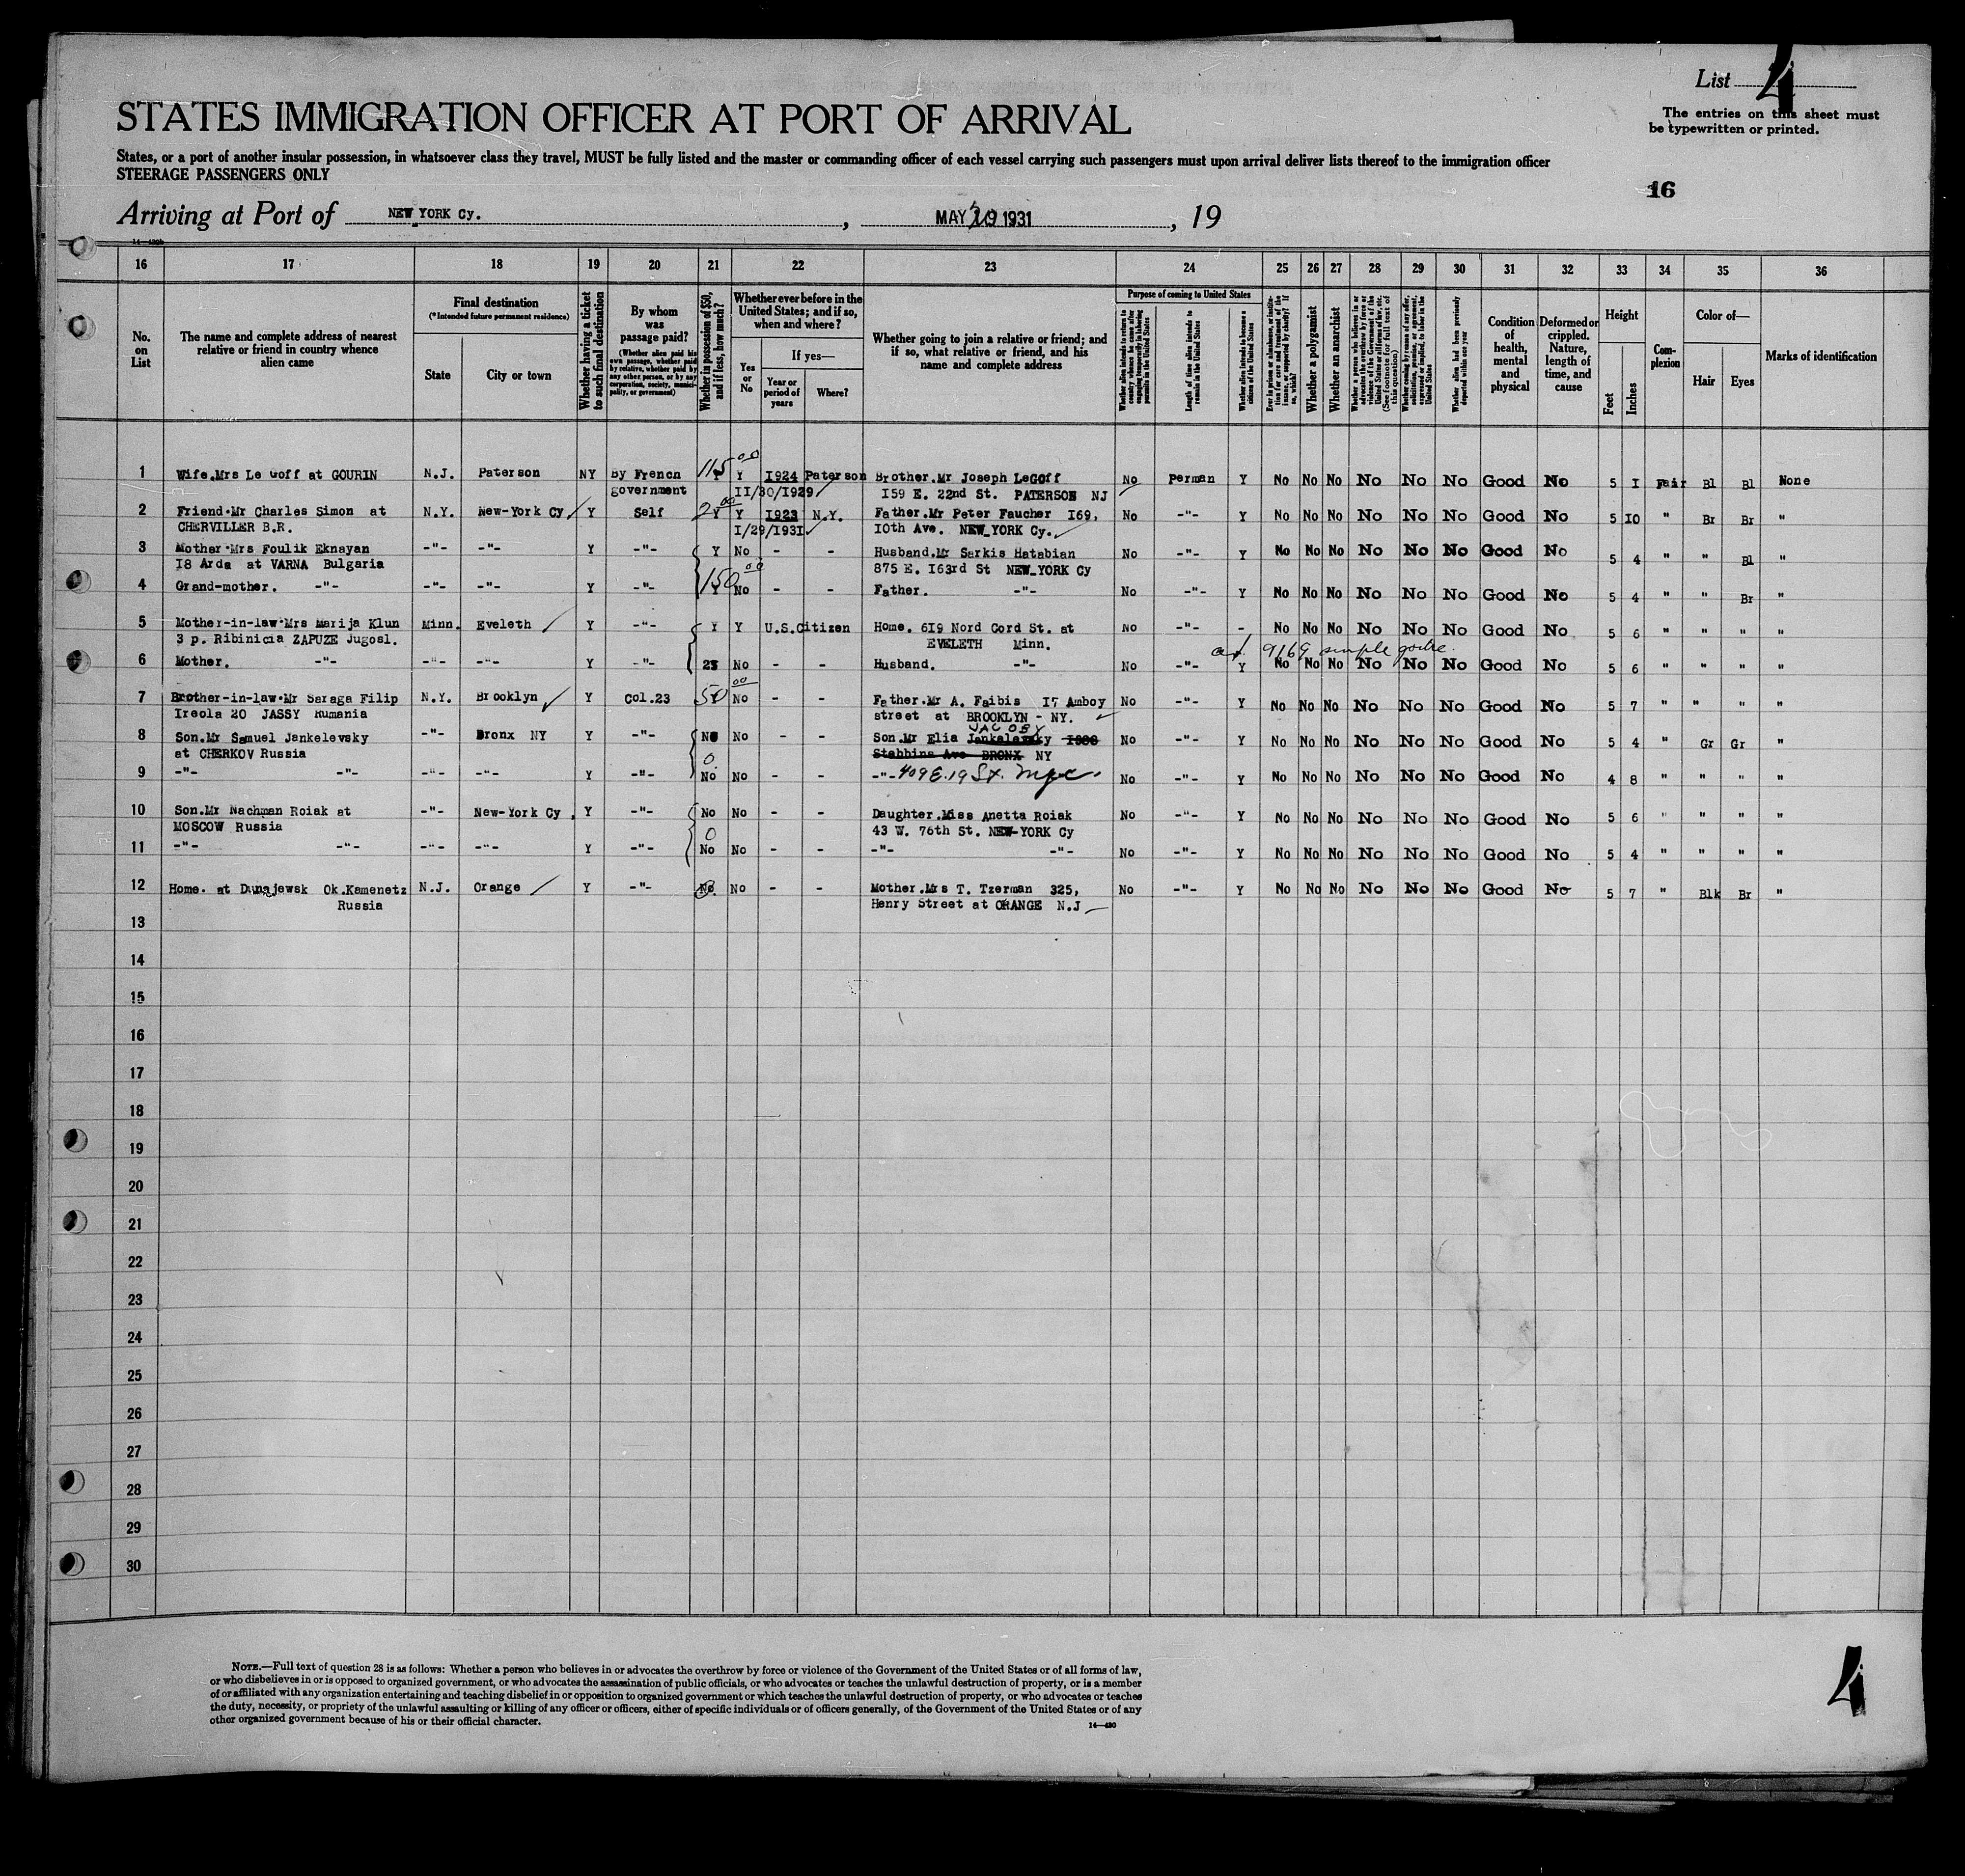 List 4
The entries on this sheet must
be typewritten or printed.
STATES IMMIGRATION OFFICER AT PORT OF ARRIVAL
States, or a port of another insular possession, in whatsoever class they travel, MUST be fully listed and the master or commanding officer of each vessel carrying such passengers must upon arrival deliver lists thereof to the immigration officer
STEERAGE PASSENGERS ONLY
16
Arriving at Port of NEW YORK Cy. , MAY 1931 , 19
16 17 18 19 20 21 22 23 24 25 26 27 28 29 30 31 32 33 34 35 36
No. on List
The name and complete address of nearest relative or friend in country whence alien came
Final destination
(*Intended future permanent residence)
State
City or town
Whether having a ticket to such final destination
By whom was passage paid?
(Whether alien paid his own passage, whether paid by relative, whether paid by any other person, or by any corporation, society, municipality, or government)
Whether in possession of $50, and if less, how much?
Whether ever before in the United States; and if so, when and where?
Yes or No
If yes—
Year or period of years
Where?
Whether going to join a relative or friend; and if so, what relative or friend, and his name and complete address
Purpose of coming to United States
Length of time alien intends to remain in the United States
Whether alien intends to become a citizen of the United States
Whether a polygamist
Whether an anarchist
Condition of health, mental and physical
Deformed or crippled. Nature, length of time, and cause
Height
Feet
Inches
Complexion
Color of—
Hair
Eyes
Marks of identification
1 Wife.Mrs Le Goff at GOURIN N.J. Paterson NY By French 115 00 Y Y 1924 Paterson Brother.Mr Joseph LeGoff No Perman Y No No No No No No Good No 5 1 Fair Bl Bl None
government II/30/1929 159 E. 22nd St. PATERSON NJ
2 Friend.Mr Charles Simon at N.Y. New-York Cy Y Self Y Y 1923 N.Y. Father.Mr Peter Faucher I69, No -"- Y No No No No No No Good No 5 10 " Br Br "
CHERVILLER B.R. I/29/1931 10th Ave. NEW_YORK Cy.
3 Mother.Mrs Foulik Eknayan -"- -"- Y -"- Y No - - Husband.Mr Sarkis Hatabian No -"- Y No No No No No No Good No 5 4 " " Bl "
18 Arda at VARNA Bulgaria 875 E. 163rd St NEW_YORK Cy
4 Grand-mother. -"- -"- -"- Y -"- 150 00 Y No - - Father. -"- No -"- Y No No No No No No Good No 5 4 " " Br "
5 Mother-in-law.Mrs Marija Klun Minn. Eveleth Y -"- Y Y U.S.Citizen Home. 619 Nord Cord St. at No -"- - No No No No No No Good No 5 6 " " " "
3 p. Ribinicia ZAPUZE Jugosl. EVELETH Minn.
9169 simple goitre
6 Mother. -"- -"- -"- Y -"- No - - Husband. -"- No -"- Y No No No No No No Good No 5 6 " " " "
7 Brother-in-law.Mr Saraga Filip N.Y. Brooklyn Y Col.23 50 00 No - - Father.Mr A. Faibis 17 Amboy No -"- Y No No No No No No Good No 5 7 " " " "
Ireola 20 JASSY Rumania street at BROOKLYN - NY.
8 Son.Mr Samuel Jankelevsky -"- Bronx NY Y -"- No No - - Son.Mr Elia Jankalevsky JACOBY No -"- Y No No No No No No Good No 5 4 " Gr Gr "
at CHERKOV Russia 0 Stebbins Ave BRONX NY
9 -"- -"- -"- -"- Y -"- No No - - -"- 409 E. 19 St. nyc No -"- Y No No No No No No Good No 4 8 " " " "
10 Son.Mr Nachman Roiak at -"- New-York Cy. Y -"- No No - - Daughter.Miss Anetta Roiak No -"- Y No No No No No No Good No 5 6 " " " "
MOSCOW Russia 0 43 W. 76th St. NEW-YORK Cy
11 -"- -"- -"- -"- Y -"- No No - - -"- -"- No -"- Y No No No No No No Good No 5 4 " " " "
12 Home. at Dunajewsk Ok.Kamenetz N.J. Orange Y -"- No No - - Mother.Mrs T. Tzerman 325, No -"- Y No No No No No No Good No 5 7 " Blk Br "
Russia Henry Street at ORANGE N.J
13
14
15
16
17
18
19
20
21
22
23
24
25
26
27
28
29
30
NOTE.—Full text of question 28 is as follows: Whether a person who believes in or advocates the overthrow by force or violence of the Government of the United States or of all forms of law,
or who disbelieves in or is opposed to organized government, or who advocates the assassination of public officials, or who advocates or teaches the unlawful destruction of property, or is a member
of or affiliated with any organization entertaining and teaching disbelief in or opposition to organized government or which teaches the unlawful destruction of property, or who advocates or teaches
the duty, necessity, or propriety of the unlawful assaulting or killing of any officer or officers, either of specific individuals or of officers generally, of the Government of the United States or of any
other organized government because of his or their official character.
14—430
4